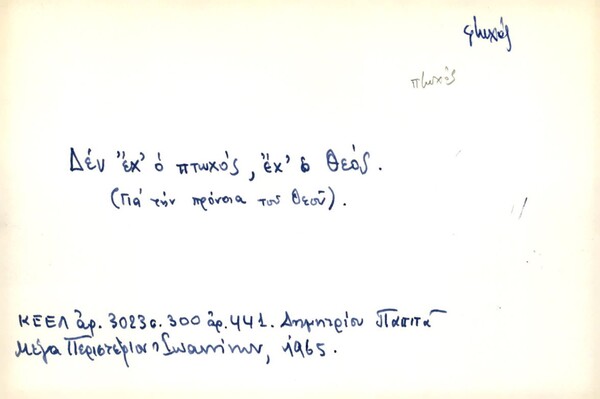 φτωχός
πτωχός
Δέν ἔχ' ὁ πτωχός, ἔχ' ὁ Θεός.
(Γιά τήν πρόνοια τοῦ Θεοῦ).
ΚΕΕΛ ἀρ. 3023 σ. 300 ἀρ. 441. Δημητρίου Παππᾶ
Μέγα Περιστέρι Ἰωαννίνων, 1965.